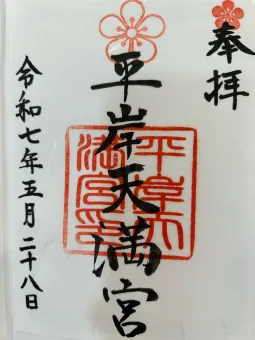 奉拝
平岸天満宮
平岸天満宮印
令和七年五月二十八日